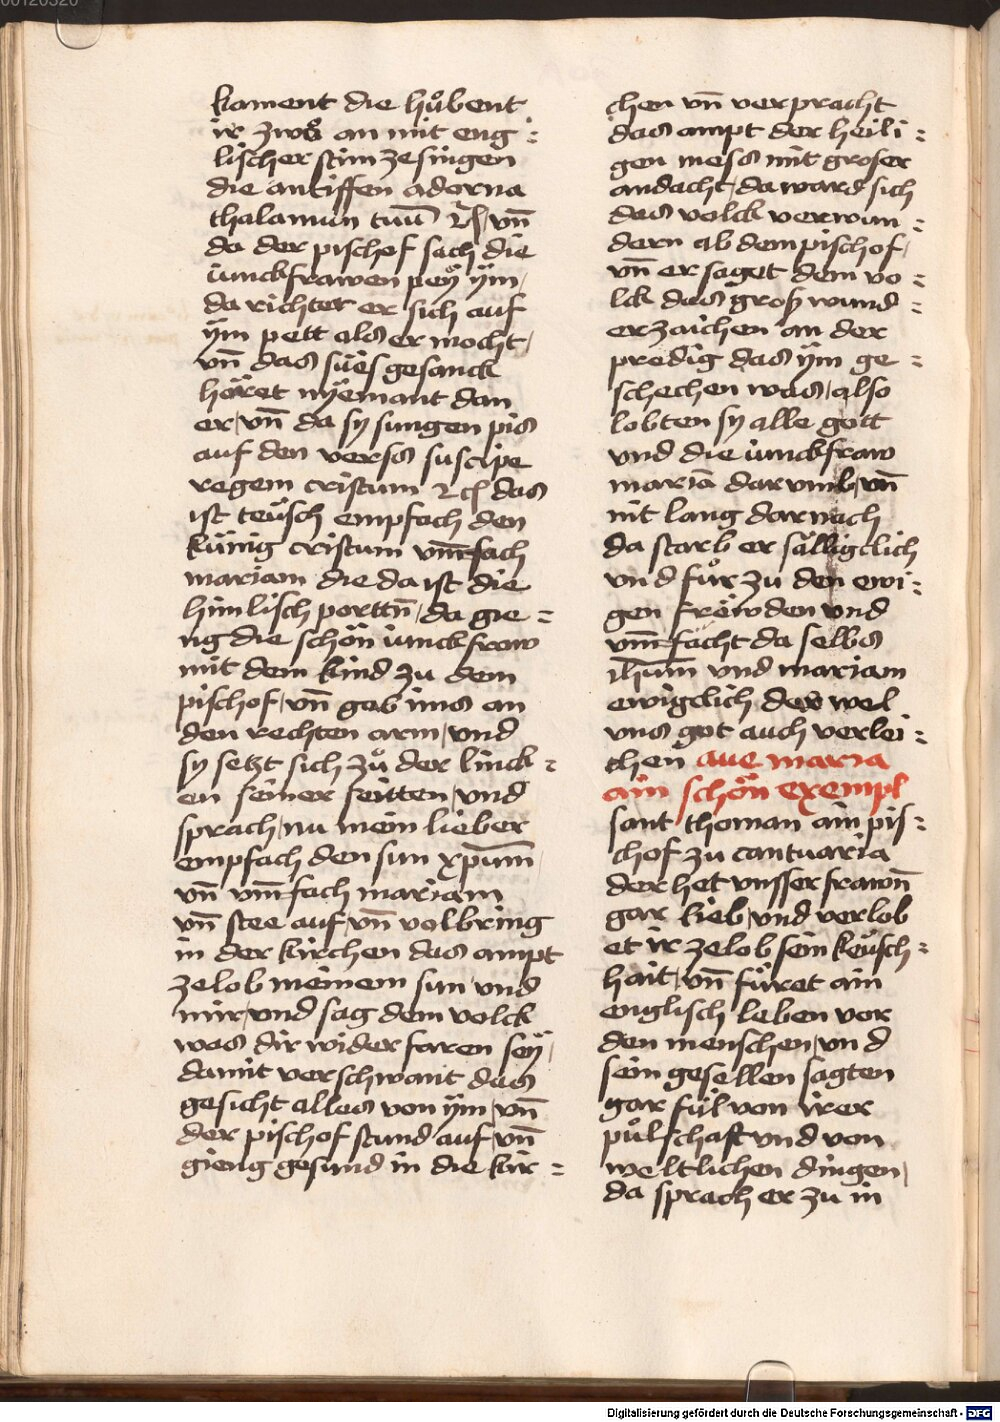 kament die hůbent
ir zwo an mit eng =
lischer stim zesingen
die antiffen adorna
thalamum tuū ⁊c̄ vn̄
da der pischof sach die
iunckfrawen peÿ ÿm /
da richtet er sich auf
ÿm pett als er mocht /
vn̄ das sües gesanck
höret nyemant dan
er / vn̄ da sy sungen pis
auf den verss suscipe
regem cristum ⁊c̄ das
ist teüsch empfach den
künig cristum vm̄fach
mariam die da ist die
himlisch porttn̄ / da gie =
ng die schön iunckfraw
mit dem kind zu dem
pischof / vn̄ gab ims an
den rechten arm / vnd
sy setzt sich zů der linck =
en seiner seitten / vnd
sprach / nu mein lieber
empfach den sun xp̄um
vn̄ vm̄fach mariam
vn̄ stee auf / vn̄ volbring
in der kirchen das ampt
zelob meinem sun / vnd
mir / vnd sag dem volck
was dir wider faren seÿ /
damit verschwant das
gesicht alles von ÿm / vn̄
der pischof stund auf / vn̄
gieng gesund in die kir =
chen vn̄ verpracht
das ampt der heili =
gen mess mit groser
andacht / da ward sich
das volck verwun =
dern ab dem pischof /
vn̄ er saget dem vo =
lck das groß wund =
erzaichen an der
predig das ÿm ge =
schechen was / also
lobten sy alle gott
vnd die iunckfraw
mariā darvmb / vn̄
nit lang darnach
da starb er sälligclich
vnd fůr zu den ewi =
gen fröwden vnd
vm̄facht da selbs
ihm̄ vnd mariam
ewigclich des wel
vns got auch verlei =
chen aue maria
ain schön exempl
sant thoman ain pis =
chof zu cantuaria
der het vnsser frawn̄
gar lieb / vnd verlob
et ir zelob sein keüsch =
hait / vn̄ füret ain
englisch leben vor
den menschen / vnd
sein gesellen sagten
gar fül von irer
půlschaft vnd von
weltlichen dingen /
da sprach er zu in
Digitalisierung gefördert durch die Deutsche Forschungsgemeinschaft - DFG